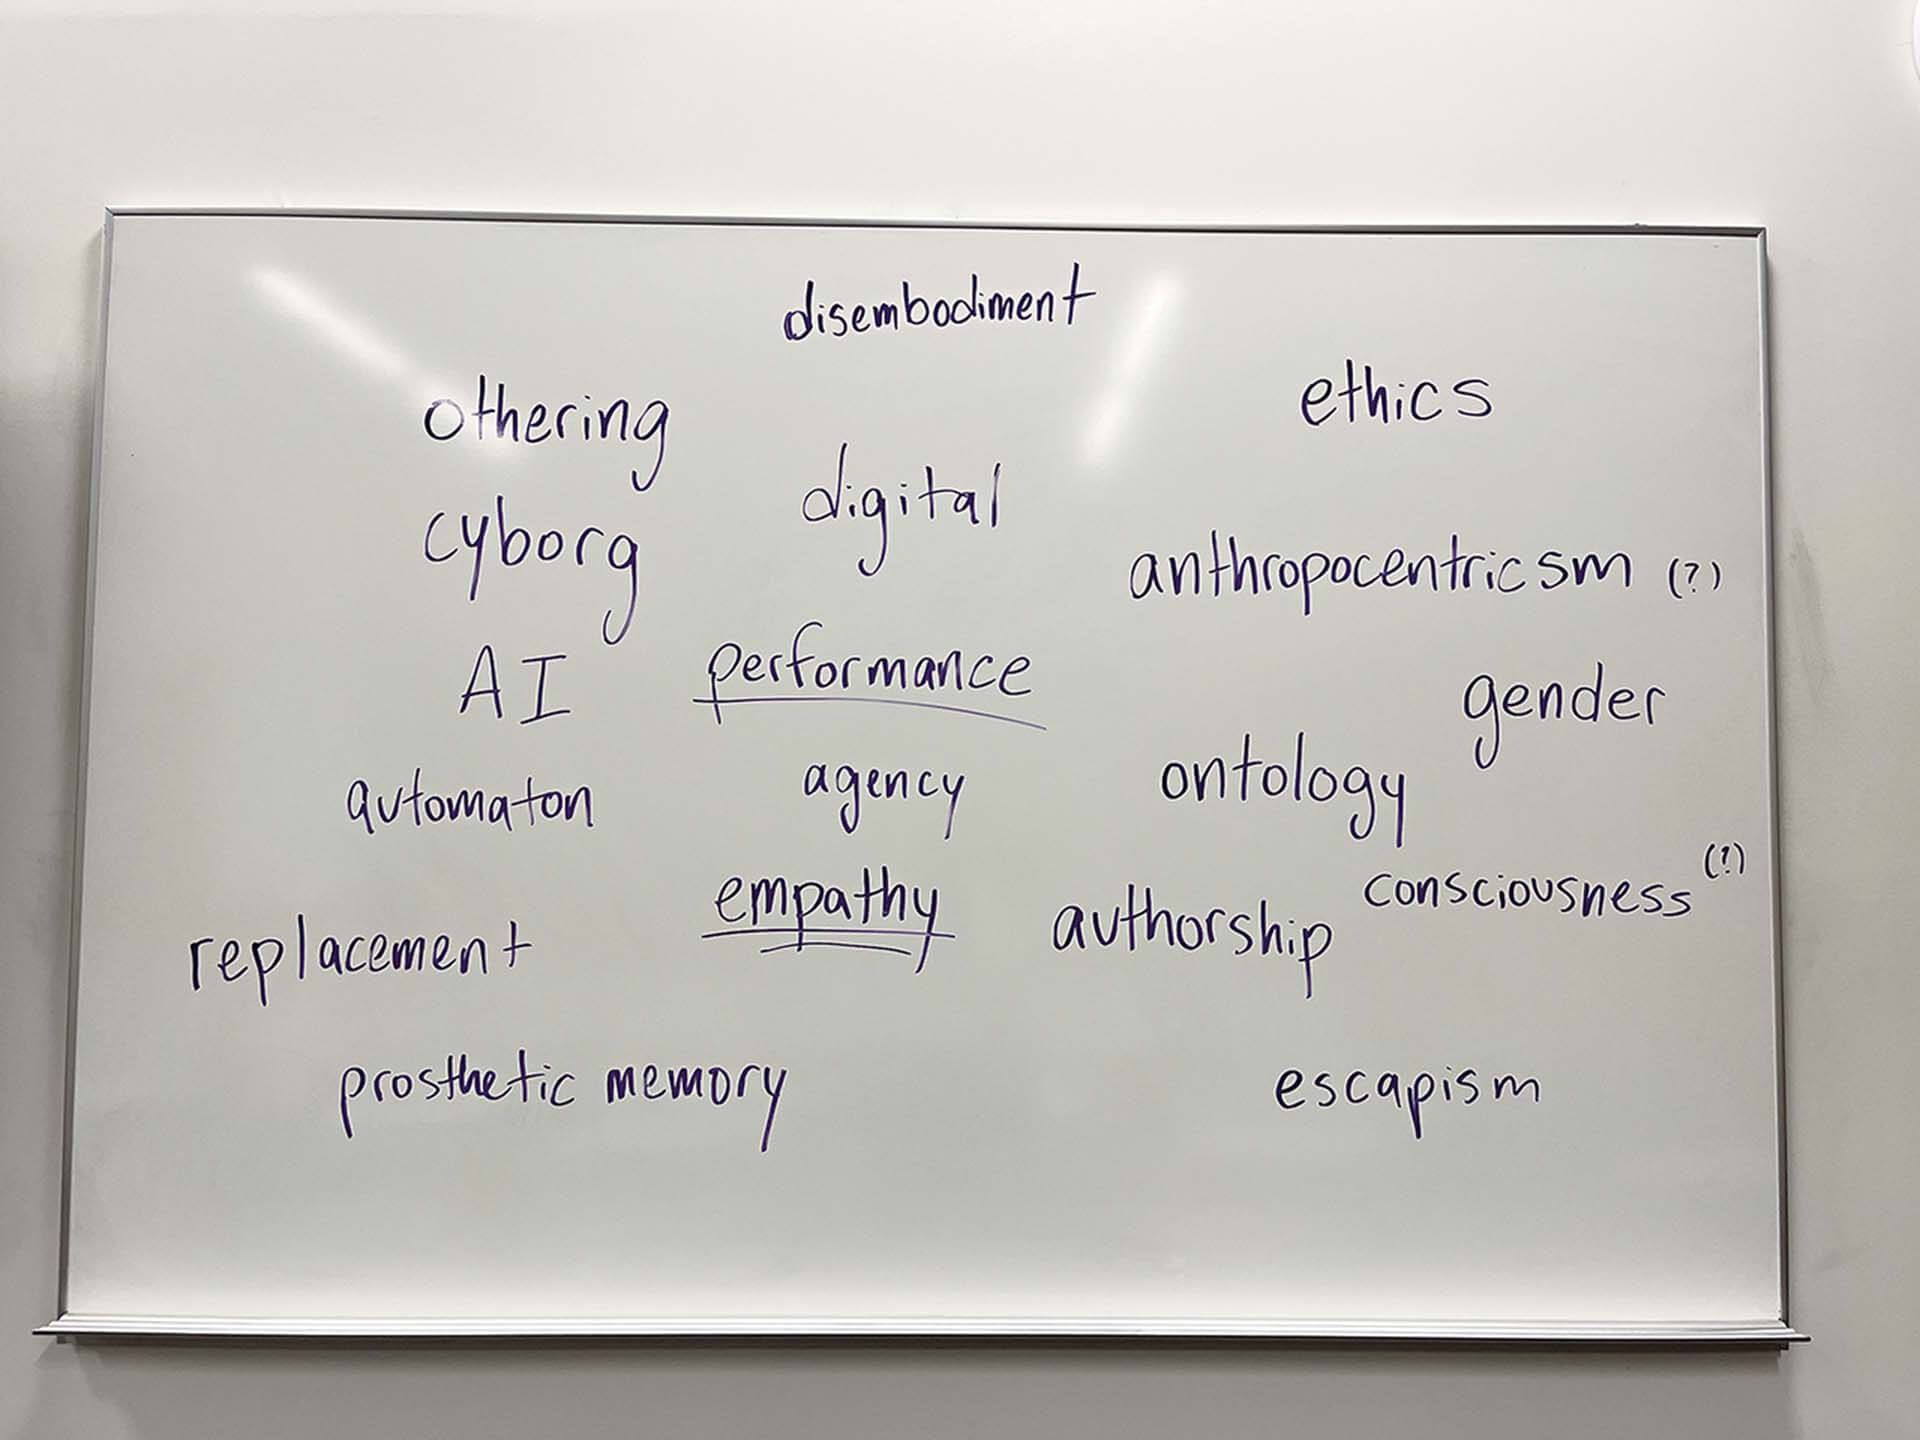 disembodiment
othering
ethics
digital
cyborg
anthropocentricsm (?)
AI
performance
gender
automaton
agency
ontology
empathy
authorship
consciousness (?)
replacement
prosthetic memory
escapism